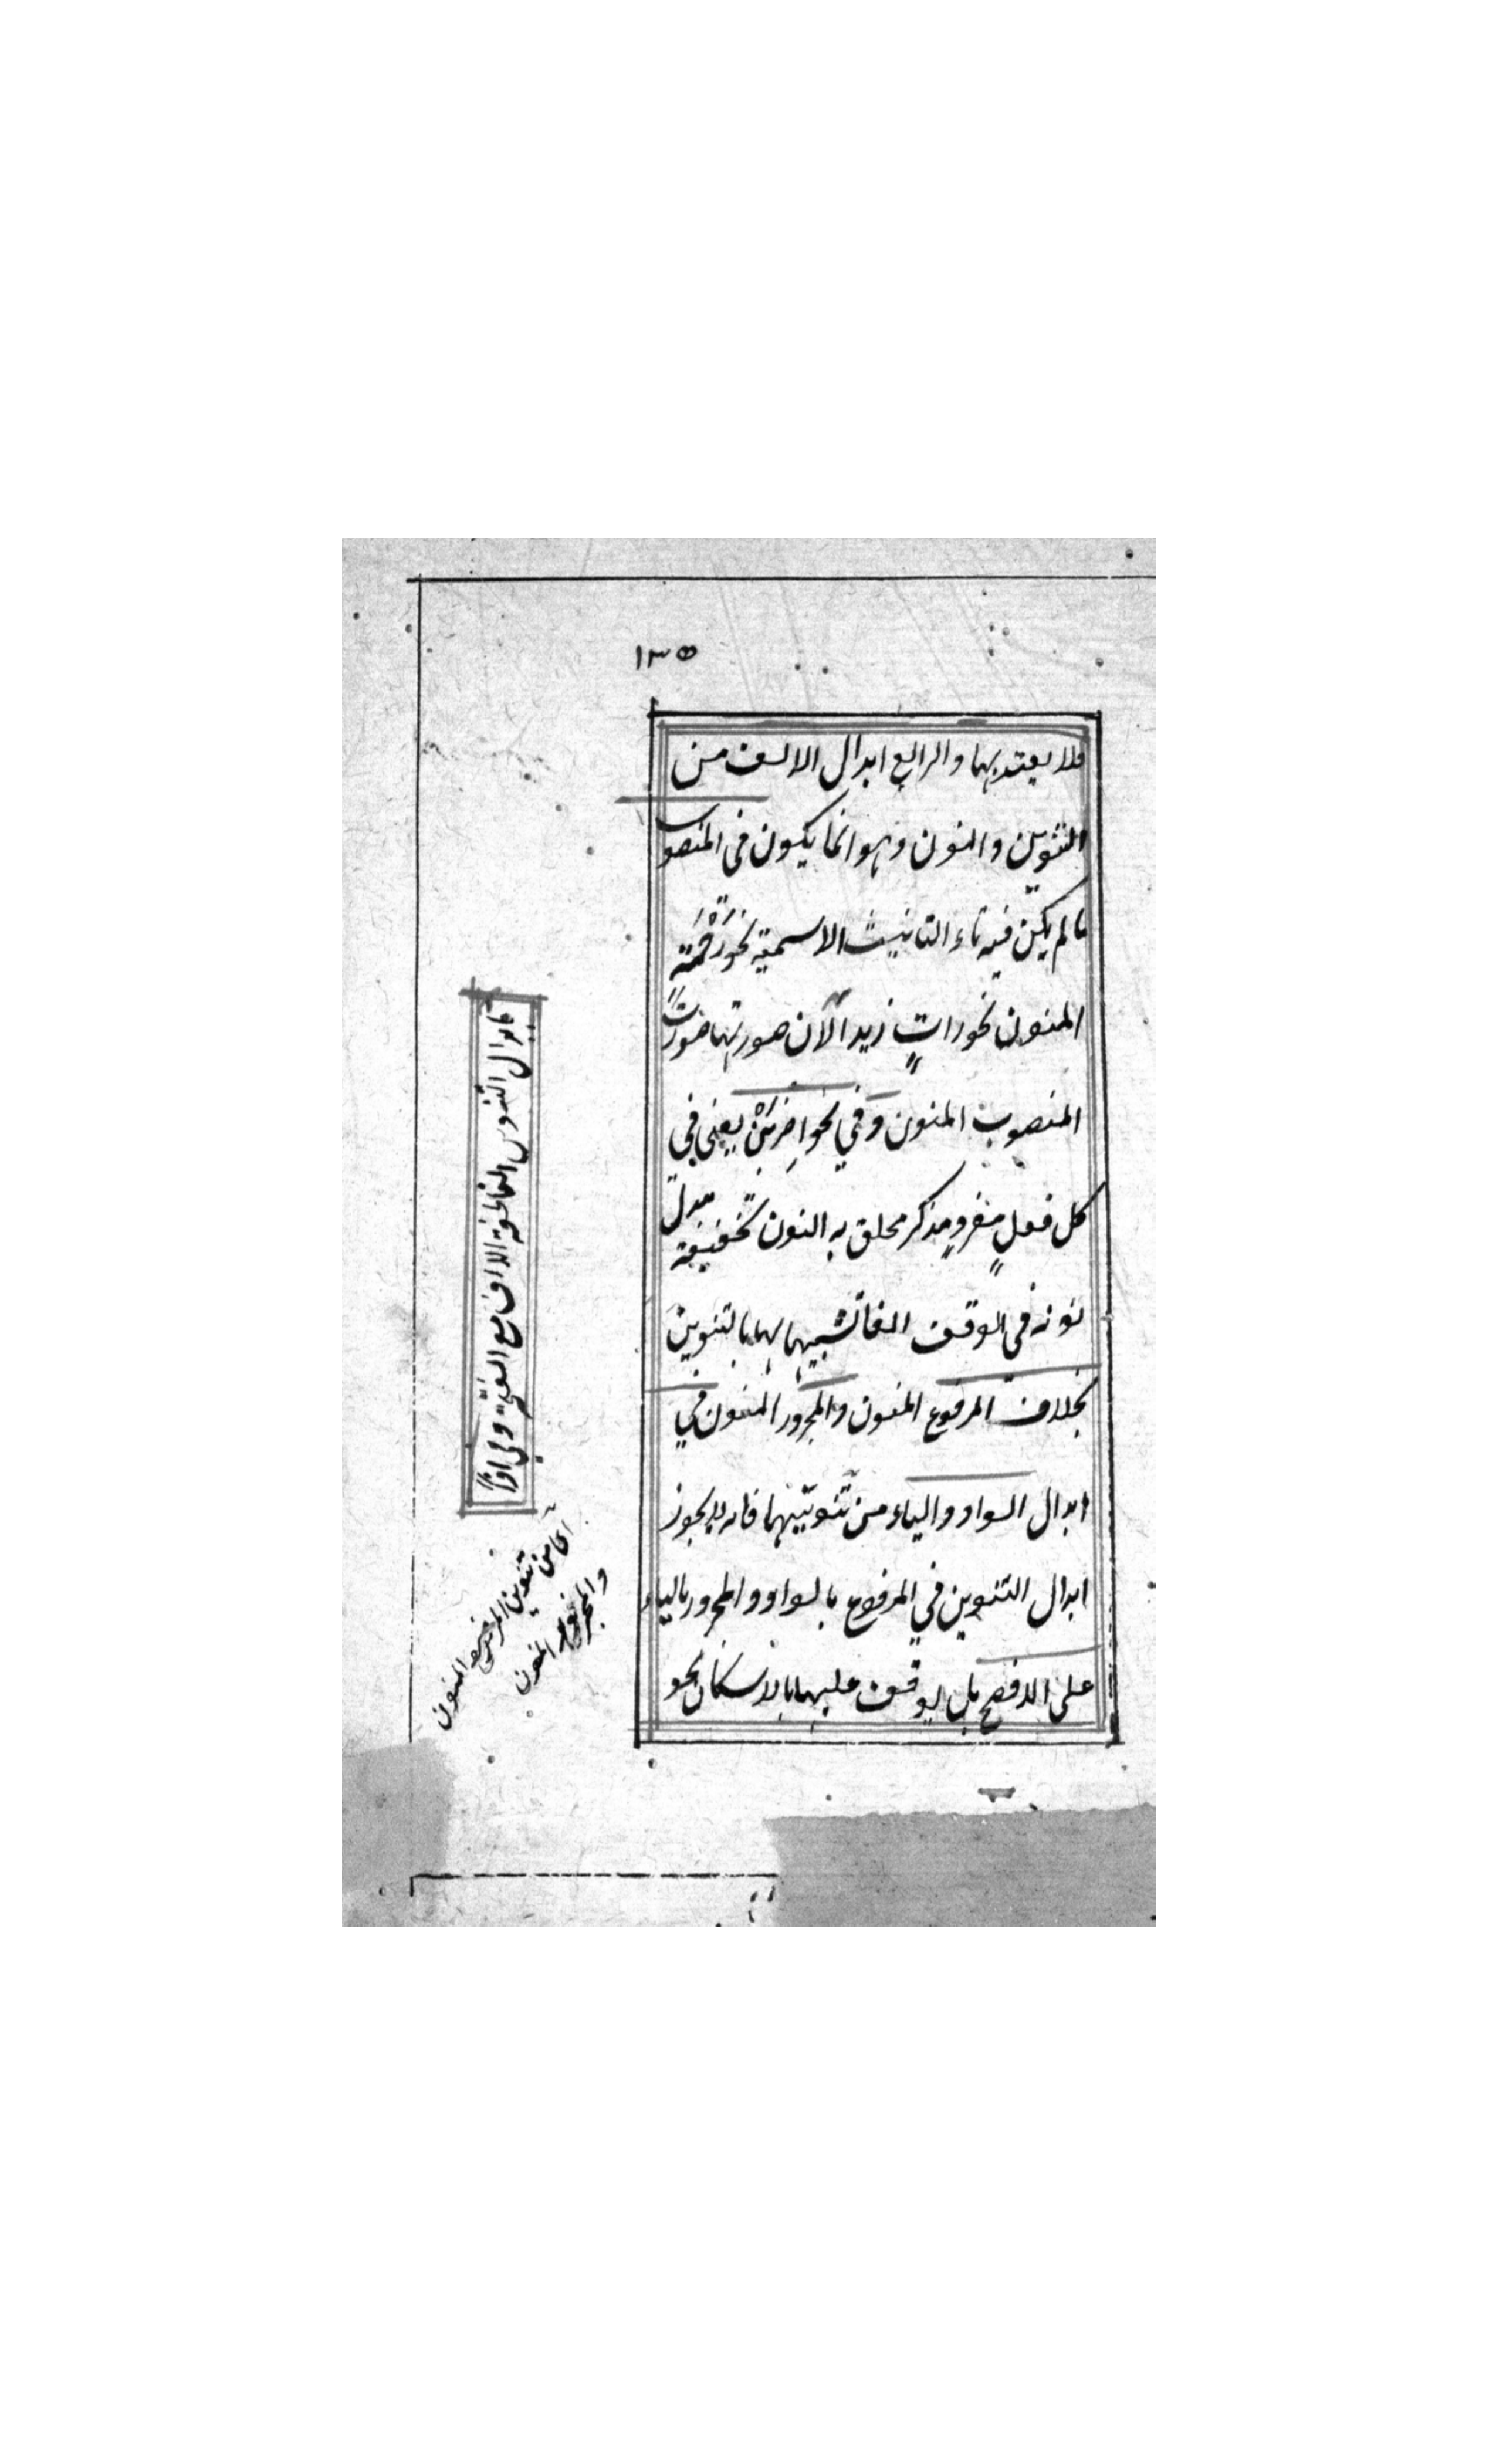 ١٣٥
ولا يعتد بهما والرابع ابدال الالف من
التنوين والنون وهو انما يكون فى المنصوب
ما لم يكن فيه تاء التانيث الاسمية نحو رَحْمَة
المنون نحو رات زيدا لان صورتها صورت
المنصوب المنون وفي نحو اضربَنْ يعنى فى
كل فعلٍ مفردٍ مذكر محلق به النون خفيفة تبدل
نونه فى الوقف الفا تشبيها لها بالتنوين
بخلاف المرفوع المنون والمجرور المنون في
ابدال الواو والياء من تنوينهما فانه لا يجوز
ابدال التنوين في المرفوع بالواو والمجرور بالياء
على الافصح بل يوقف عليهما بالاسكان نحو
ابدال التنوين الفا لخفة الالف مع الفتحة
اى من تنوين المرفوع المنون
والمجرور المنون